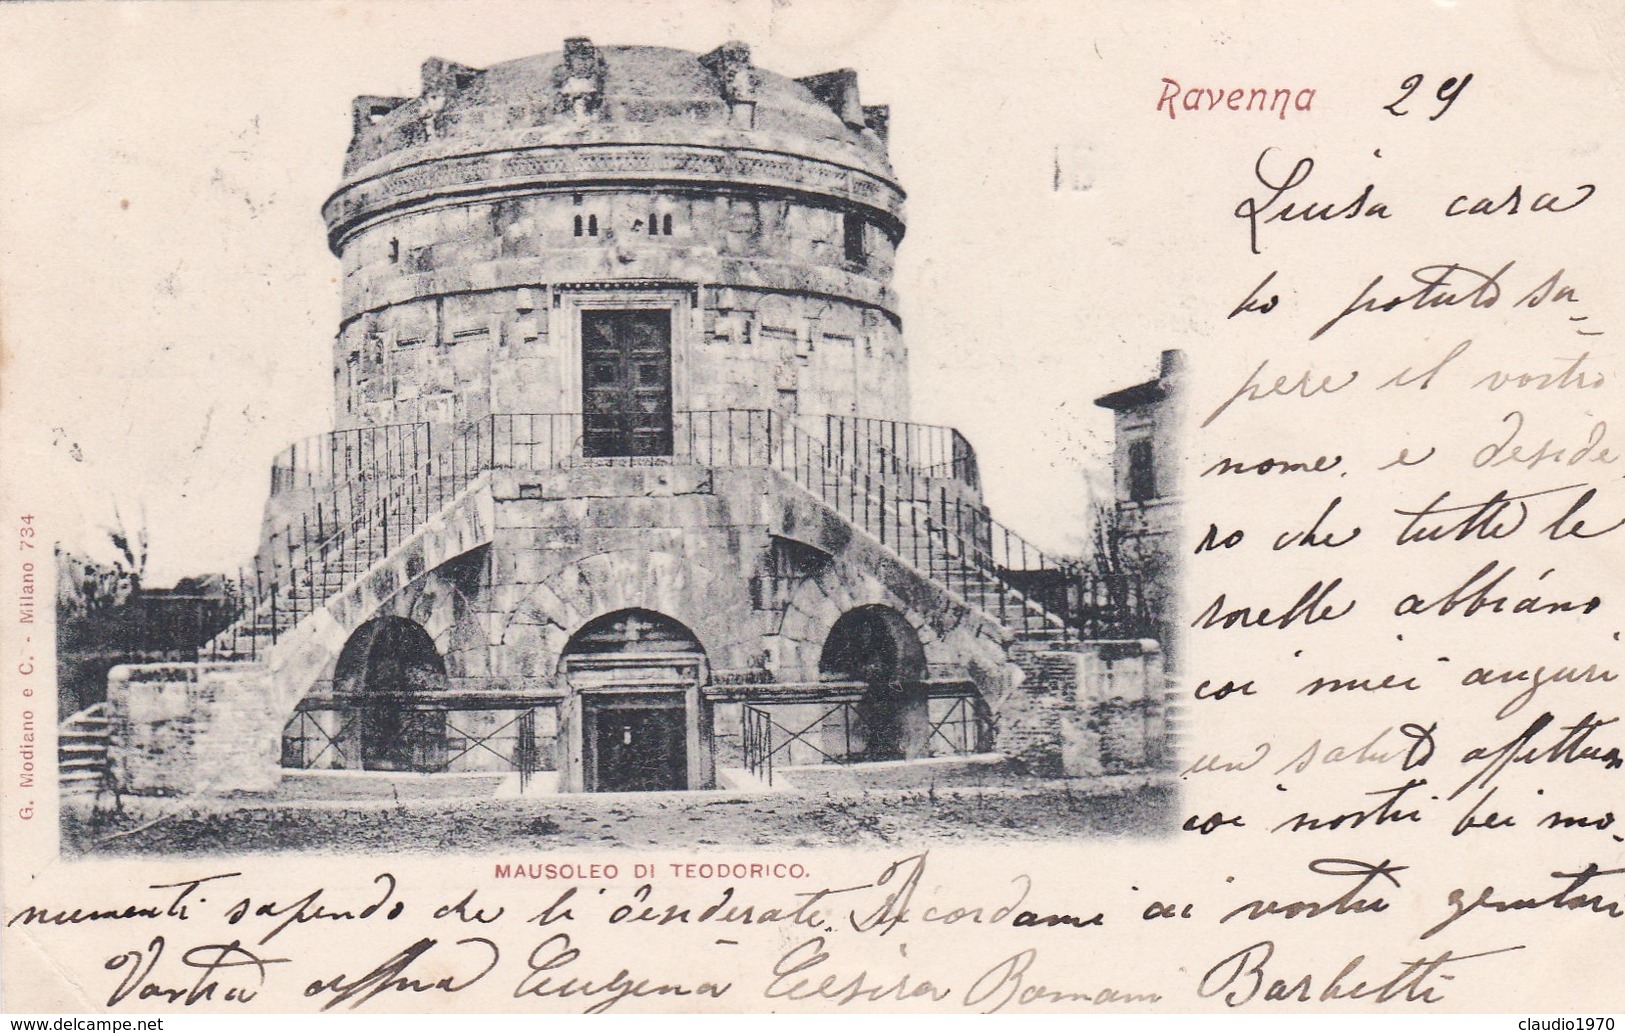 Ravenna 29
Luisa cara
ho potuto sa-
pere il vostro
nome, e deside
ro che tutte le
sorelle abbiano
coi miei auguri
un saluto affettuoso
coi nostri bei mo-
numenti sapendo che li desiderate. Ricordami ai vostri genitori
Vostra affma Eugenia Romani Barbetti
MAUSOLEO DI TEODORICO.
G. Modiano e C. - Milano 734
claudio1970